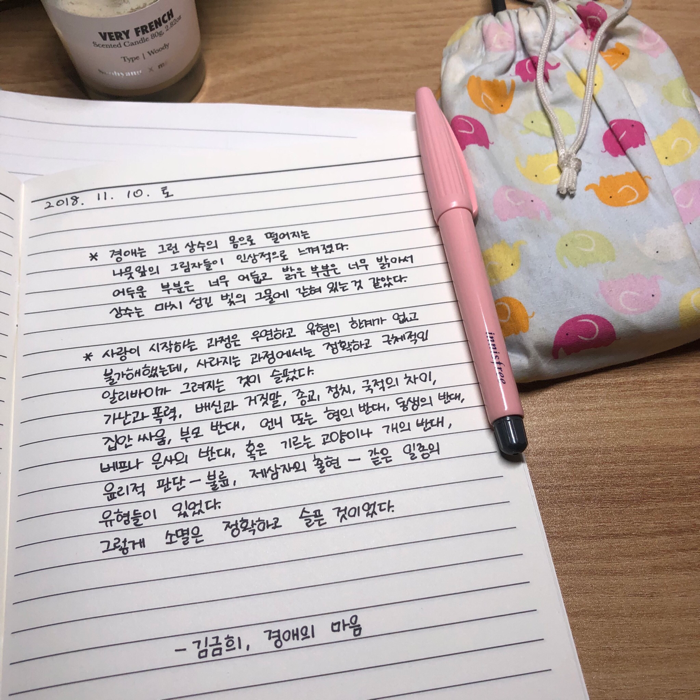 VERY FRENCH
Scented Candle 80g, 2.82oz
Type | Woody
2018. 11. 10. 토
* 경애는 그런 상수의 몸으로 떨어지는
나뭇잎의 그림자들이 인상적으로 느껴졌다.
어두운 부분은 너무 어둡고 밝은 부분은 너무 밝아서
상수는 마치 성긴 빛의 그물에 갇혀 있는 것 같았다.
* 사랑이 시작하는 과정은 우연하고 유형의 한계가 없고
불가해했는데, 사라지는 과정에서는 정확하고 구체적인
알리바이가 그려지는 것이 슬펐다.
가난과 폭력, 배신과 거짓말, 종교, 정치, 국적의 차이,
집안 싸움, 부모 반대, 언니 또는 형의 반대, 동생의 반대,
베프나 은사의 반대, 혹은 기르는 고양이나 개의 반대,
윤리적 판단 - 불륜, 제삼자의 출현 - 같은 일종의
유형들이 있었다.
그렇게 소멸은 정확하고 슬픈 것이었다.
- 김금희, 경애의 마음
innisfree